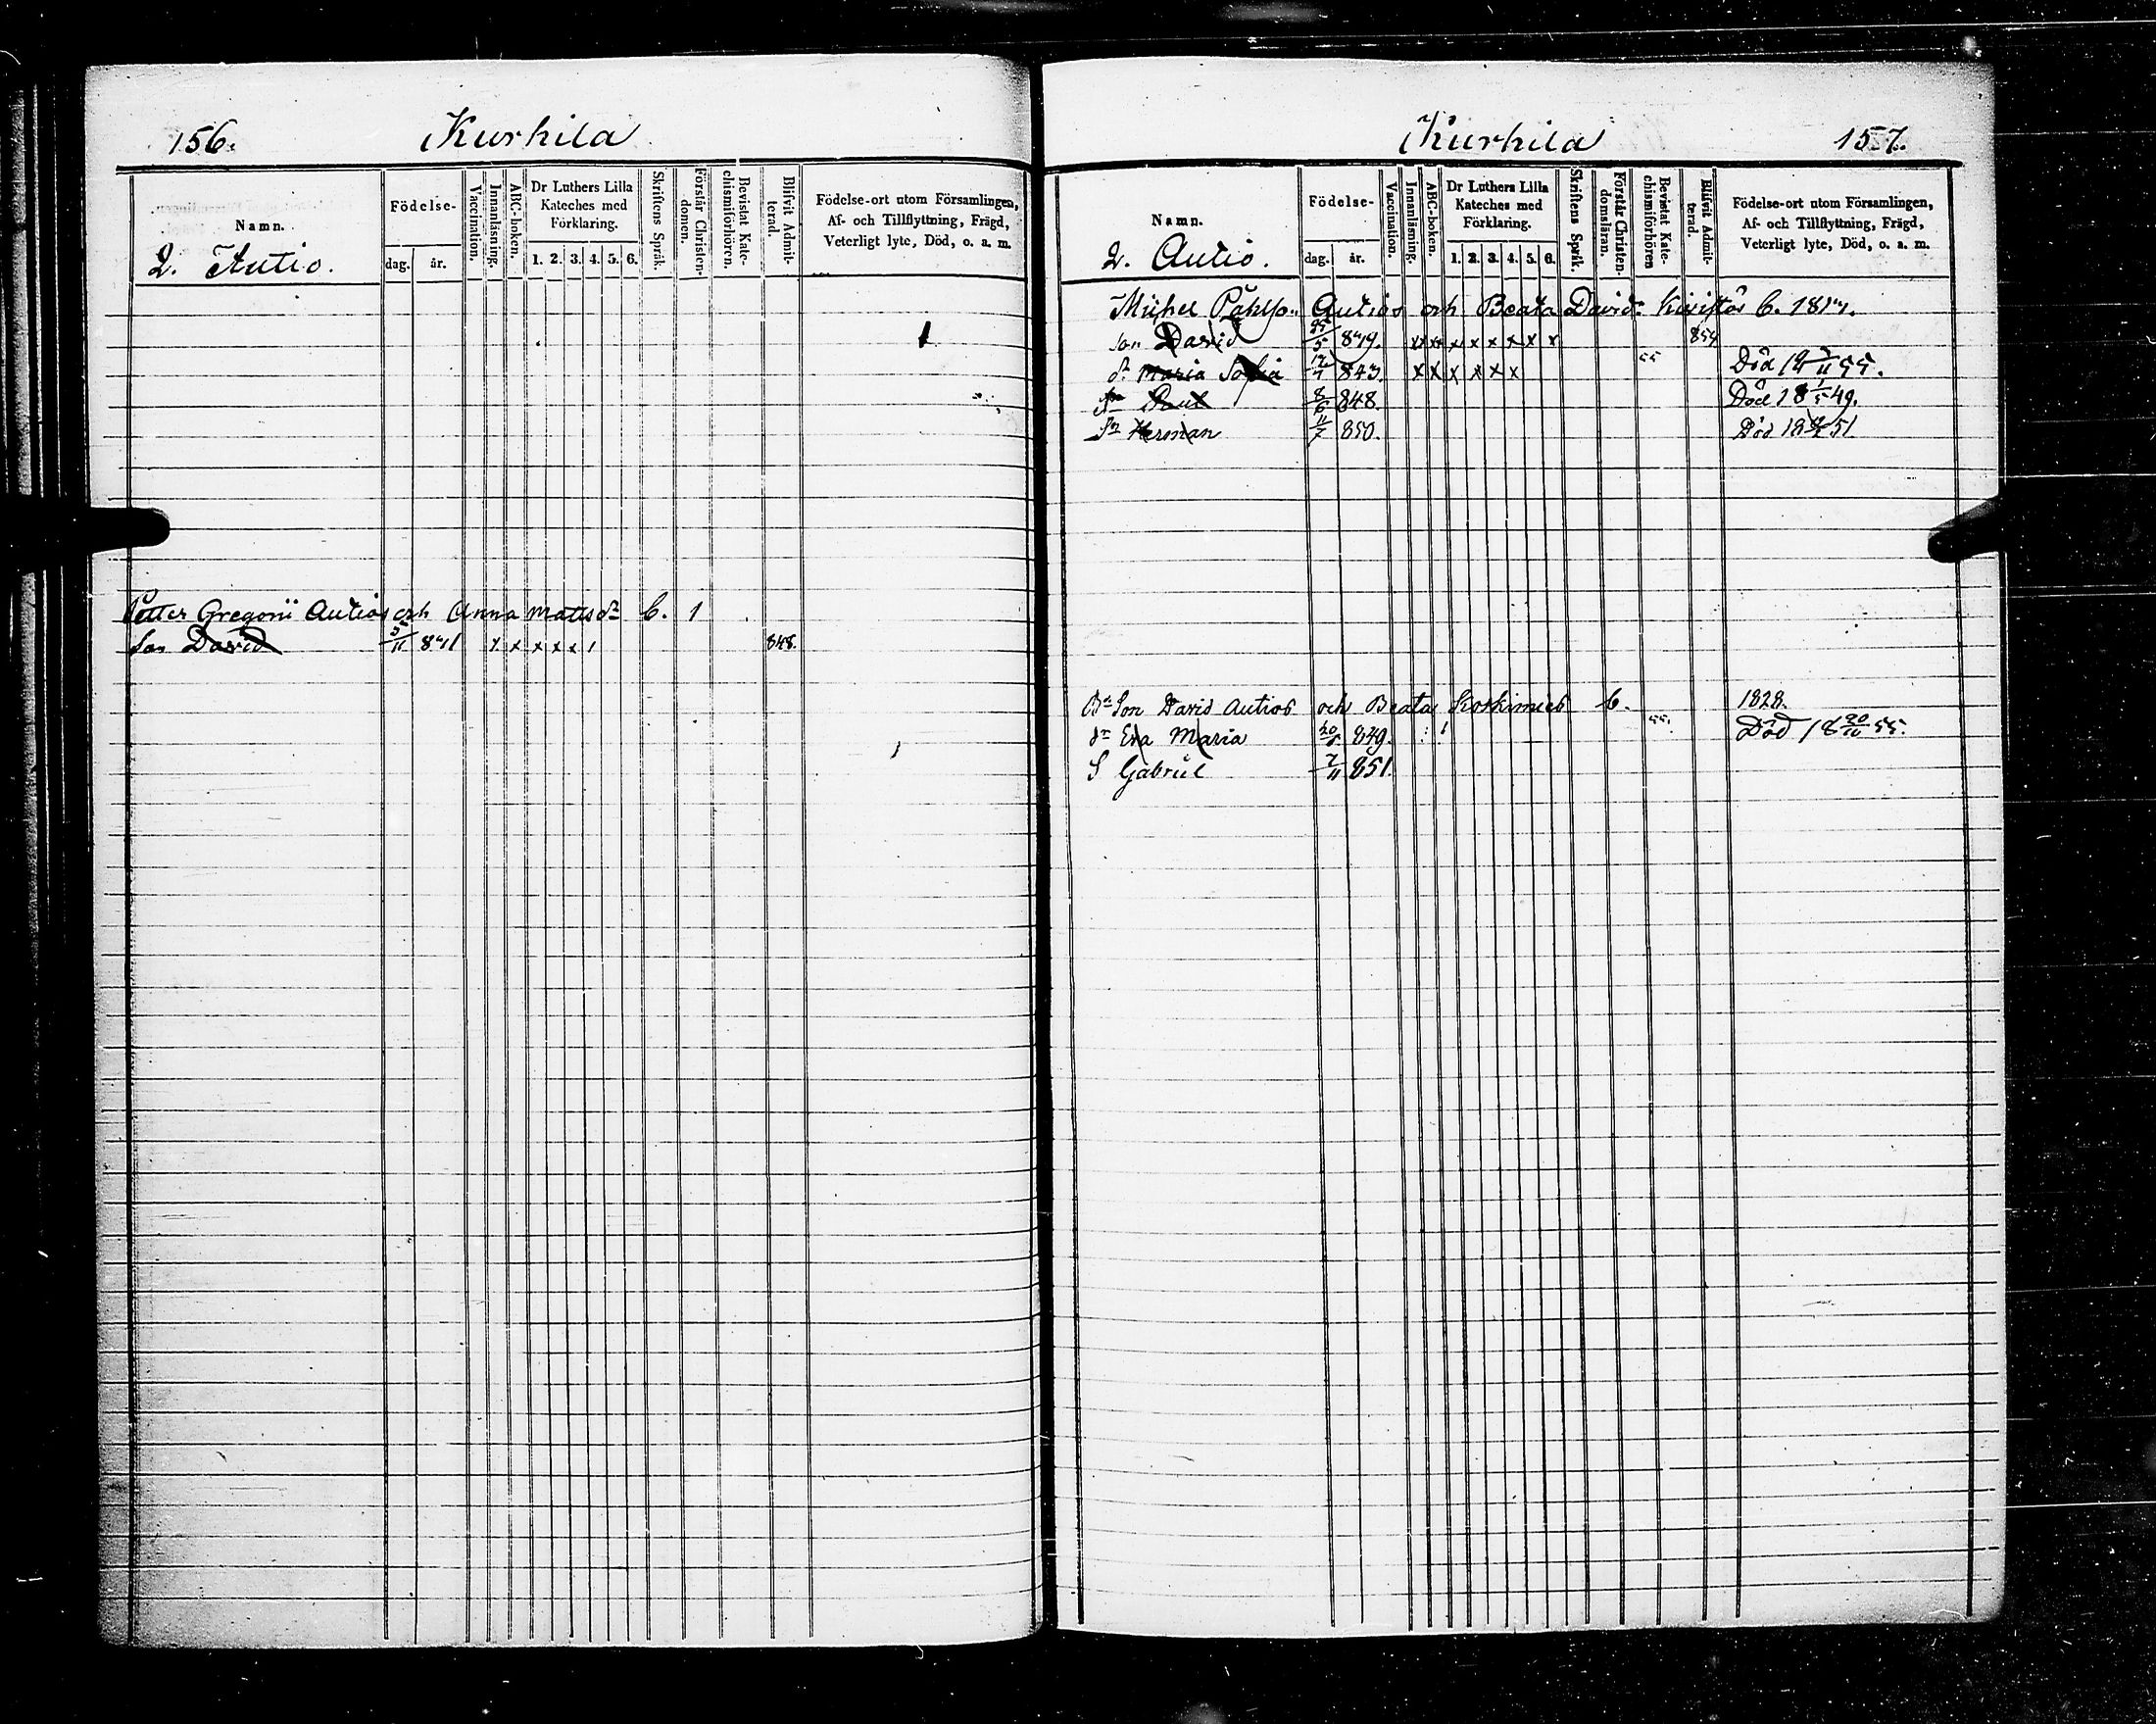 156.
Kurhila
Namn.
2. Autio.
Födelse-
dag.
år.
Vaccination.
Innanläsning.
ABC-boken.
Dr Luthers Lilla
Kateches med
Förklaring.
1. 2. 3. 4. 5. 6.
Skriftens Språk.
Förstår Christen-
domen.
Bevistat Kate-
chismiförhören.
Blifvit Admit-
terad.
Födelse-ort utom Församlingen,
Af- och Tillflyttning, Frägd,
Veterligt lyte, Död, o. a. m.
Petter Gregorii Autios och Anna Matts dr C. 1
Son David 5/11 841 x x x x x 1 848.
Kurhila
157.
Namn.
2. Autio.
Födelse-
dag.
år.
Vaccination.
Innanläsning.
ABC-boken.
Dr Luthers Lilla
Kateches med
Förklaring.
1. 2. 3. 4. 5. 6.
Skriftens Språk.
Förstår Christen-
domsläran.
Bevistat Kate-
chismiförhören
Blifvit Admit-
terad.
Födelse-ort utom Församlingen,
Af- och Tillflyttning, Frägd,
Veterligt lyte, Död, o. a. m.
Autios och Beata David C.
son David x x x x x x x x 854
dr Maria Sofia 843. x x x x x x 55 Död 55.
Sn Paul 8/6 848. Död 18 1/5 49.
Sn Herman 11/7 850. Död 18 51
Son David Autios och Beata Koskimies C. 1828.
dr Eva Maria 849. 55. Död 18 55.
S Gabriel 7/11 851.